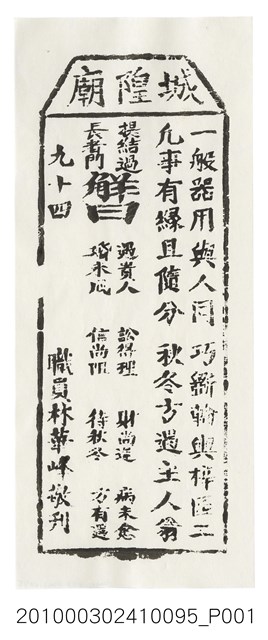 城隍廟
一般器用與人同 巧斵輪輿梓匠工
凡事有緣且隨分 秋冬方遇主人翁
提結過
長者門
解曰
遇貴人 訟得理 財尚遲 病未愈
婚未成 信尚阻 待秋冬 方有遇
九十四
職員林華峰敬刊
201000302410095_P001